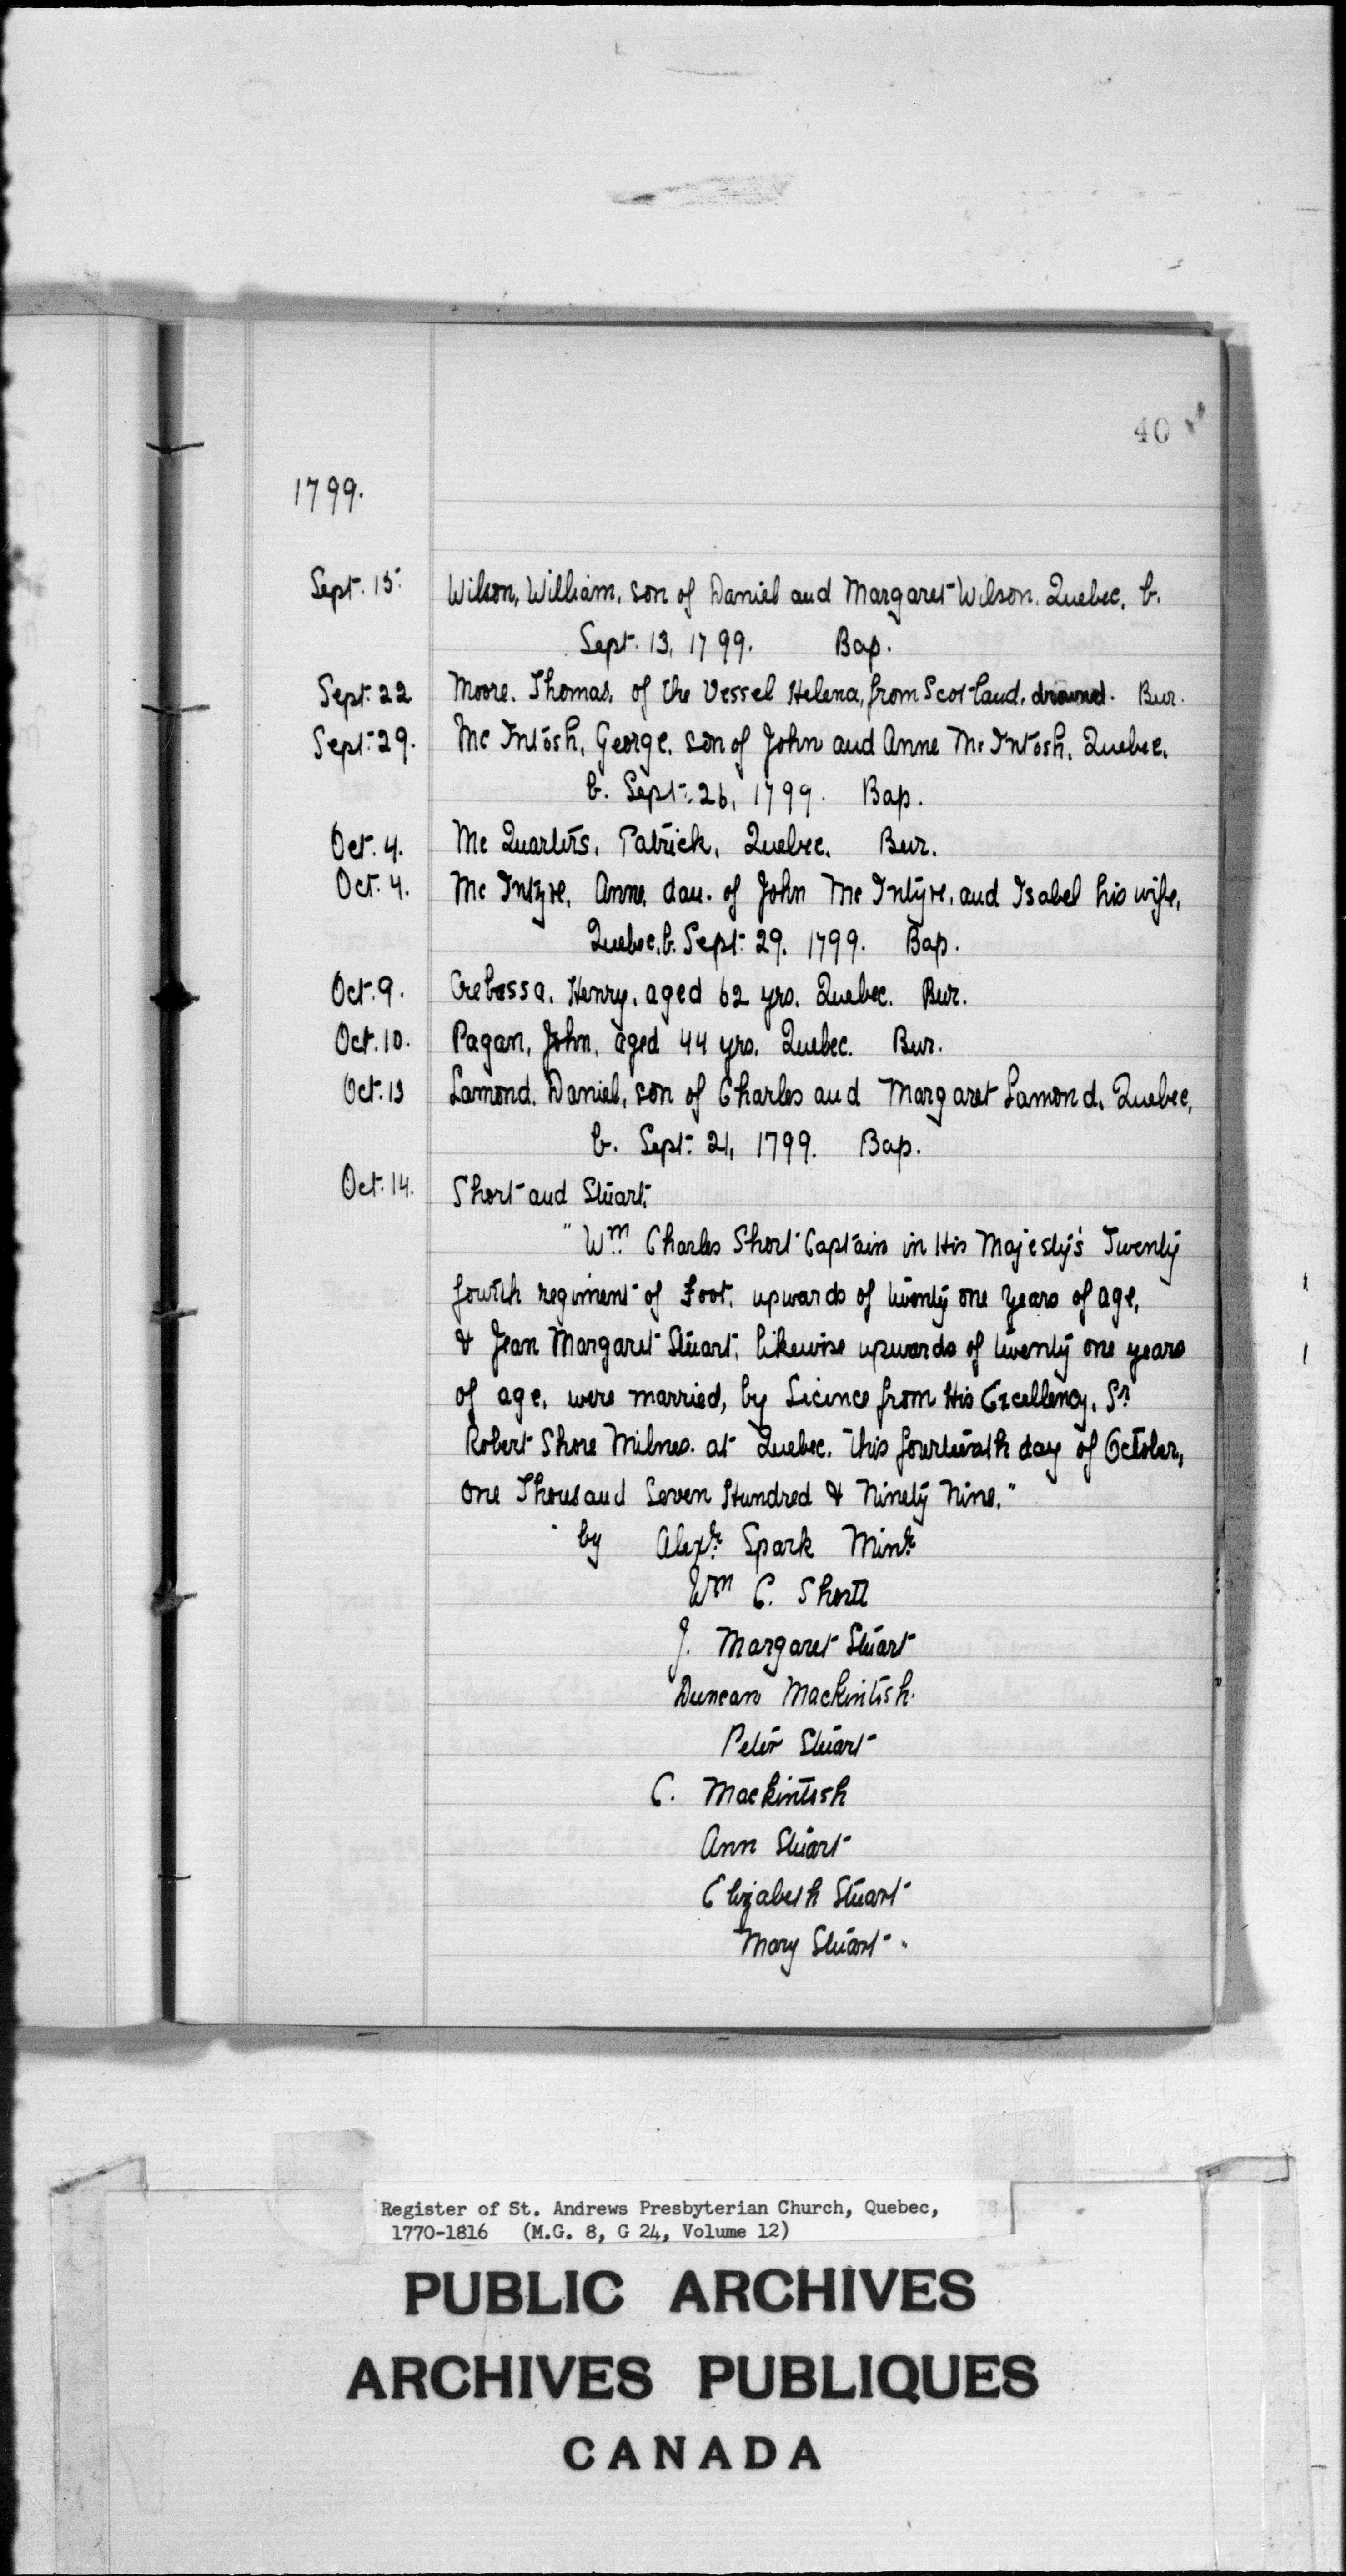 40
1799.
Sept. 15. Wilson, William, son of Daniel and Margaret Wilson. Quebec, b.
Sept. 13, 1799. Bap.
Sept. 22 Moore, Thomas, of the Vessel Helena, from Scotland, drowned. Bur.
Sept. 29. Mc Intosh, George, son of John and Anne Mc Intosh, Quebec,
b. Sept. 26, 1799. Bap.
Oct. 4. Mc Quarters, Patrick, Quebec. Bur.
Oct. 4. Mc Intyre, Anne, dau. of John Mc Intyre, and Isabel his wife,
Quebec, b. Sept. 29. 1799. Bap.
Oct. 9. Crebassa, Henry, aged 62 yrs. Quebec. Bur.
Oct. 10. Pagan, John, aged 44 yrs. Quebec. Bur.
Oct. 13 Lamond, Daniel, son of Charles and Margaret Lamond, Quebec,
b. Sept. 21, 1799. Bap.
Oct. 14. Short and Stuart.
"Wm. Charles Short Captain in His Majesty's Twenty
fourth regiment of Foot, upwards of twenty one years of age,
& Jean Margaret Stuart, likewise upwards of twenty one years
of age, were married, by Licence from His Excellency, Sr.
Robert Shore Milnes. at Quebec. This fourteenth day of October,
one Thousand Seven Hundred & Ninety Nine."
by Alexr. Spark Minr.
Wm C. Shortt
J. Margaret Stuart
Duncan Mackintosh.
Peter Stuart
C. Mackintosh
Ann Stuart
Elizabeth Stuart
Mary Stuart "
Register of St. Andrews Presbyterian Church, Quebec,
1770-1816 (M.G. 8, G 24, Volume 12)
PUBLIC ARCHIVES
ARCHIVES PUBLIQUES
CANADA